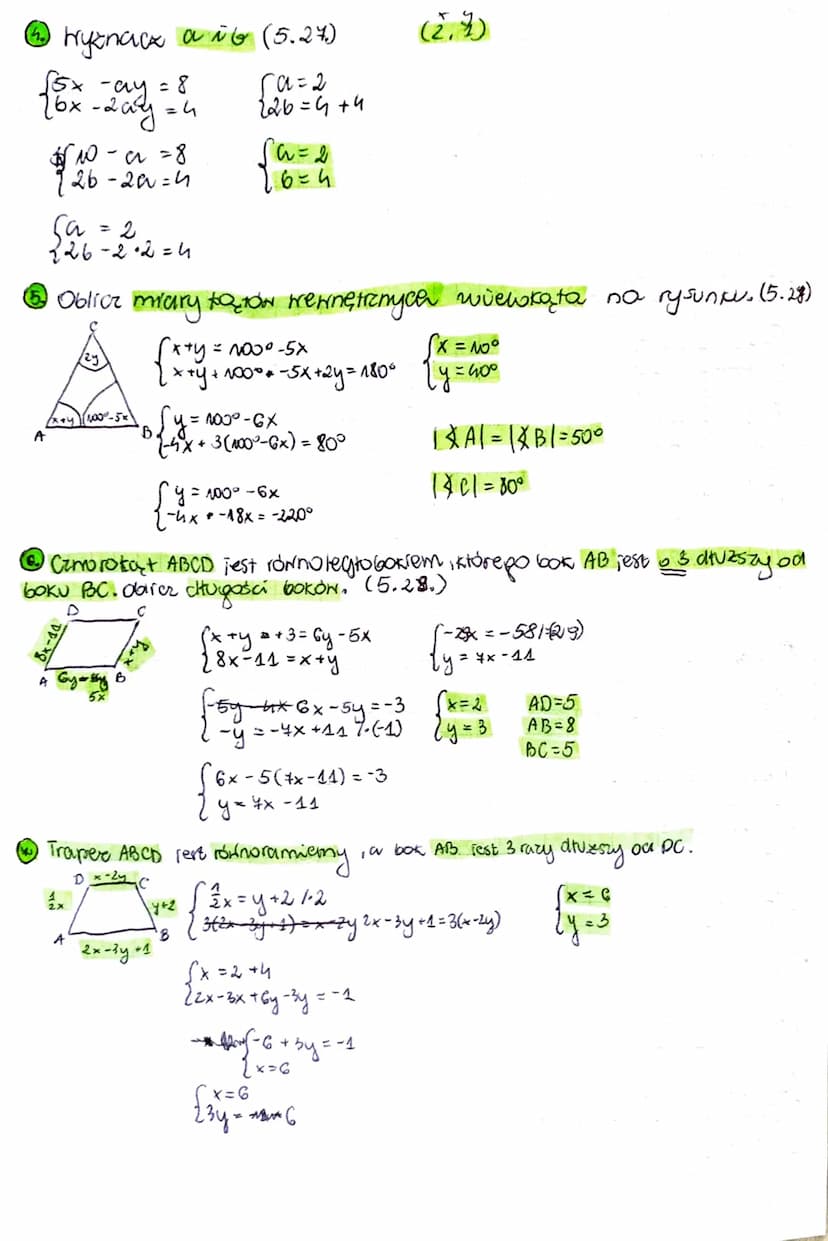 4. Wyznacz a i b (5.27.) (2, 1)
x y
{5x - ay = 8 {a = 2
6x - 2ay = 4 {2b = 4 + 4
{10 - a = 8 {a = 2
{2b - 2a = 4 {b = 4
{a = 2
{2b - 2 · 2 = 4
5. Oblicz miary kątów wewnętrznych wielokąta na rysunku. (5.28)
C
2y
x+y 100°-5x
A B
{x+y = 100° - 5x {x = 10°
{x+y + 100° - 5x + 2y = 180° {y = 40°
{y = 100° - 6x
{-4x + 3(100° - 6x) = 80° |∢A| = |∢B| = 50°
|∢C| = 80°
{y = 100° - 6x
{-4x - 18x = -220°
6. Czworokąt ABCD jest równoległobokiem, którego bok AB jest o 3 dłuższy od
boku BC. oblicz długości boków. (5.28.)
D C
8x-11 x+y
A 6y - 5x B
{x+y + 3 = 6y - 5x {-29x = -58 /:(-29)
{8x - 11 = x+y {y = 7x - 11
{6x - 5y = -3 {x = 2 AD = 5
{-y = -7x + 11 /·(-1) {y = 3 AB = 8
BC = 5
{6x - 5(7x - 11) = -3
{y = 7x - 11
Trapez ABCD jest równoramienny, a bok AB jest 3 razy dłuższy od DC.
D x-2y C
1/2x y+2
A B
2x-3y+1
{1/2x = y+2 /·2 {x = 6
{2x-3y+1 = 3(x-2y) {y = 3
{x = 2 + 4
{2x - 3x + 6y - 3y = -1
{-6 + 3y = -1
{x = 6
{x = 6
{3y = 6